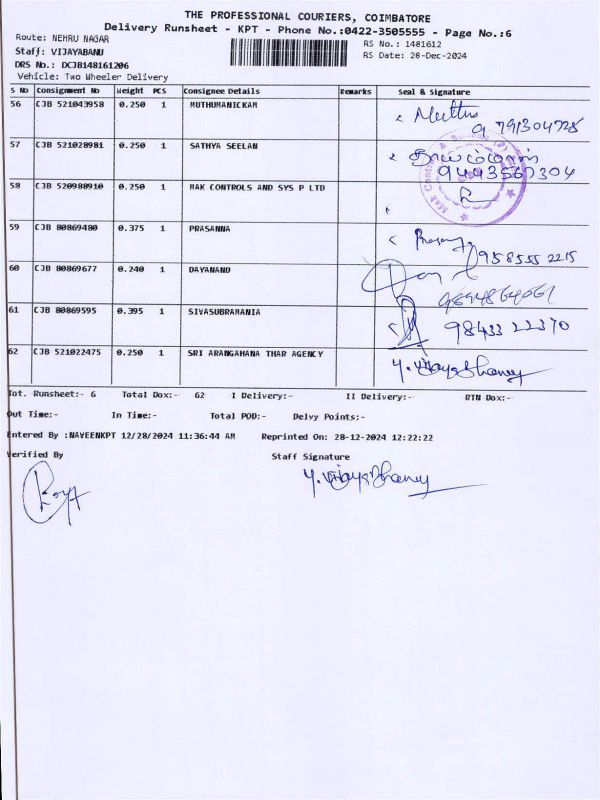 THE PROFESSIONAL COURIERS, COIMBATORE
Delivery Runsheet - KPT - Phone No.:0422-3505555 - Page No.:6
Route: NEHRU NAGAR RS No.: 1481612
Staff: VIJAYABANU RS Date: 28-Dec-2024
DRS No.: DCJB148161206
Vehicle: Two Wheeler Delivery
S No Consignment No Weight PCS Consignee Details Remarks Seal & Signature
56 CJB 521043958 0.250 1 MUTHUMANICKAM Muthu
57 CJB 521028981 0.250 1 SATHYA SEELAN
9443567304
58 CJB 520988910 0.250 1 MAK CONTROLS AND SYS P LTD
59 CJB 80869480 0.375 1 PRASANNA
958555 2215
60 CJB 80869677 0.240 1 DAYANAND
61 CJB 80869595 0.395 1 SIVASUBRAMANIA 98433 22370
62 CJB 521022475 0.250 1 SRI ARANGAHANA THAR AGENCY
Tot. Runsheet:- 6 Total Dox:- 62 I Delivery:- II Delivery:- RTN Dox:-
Out Time:- In Time:- Total POD:- Delvy Points:-
Entered By :NAVEENKPT 12/28/2024 11:36:44 AM Reprinted On: 28-12-2024 12:22:22
Verified By Staff Signature